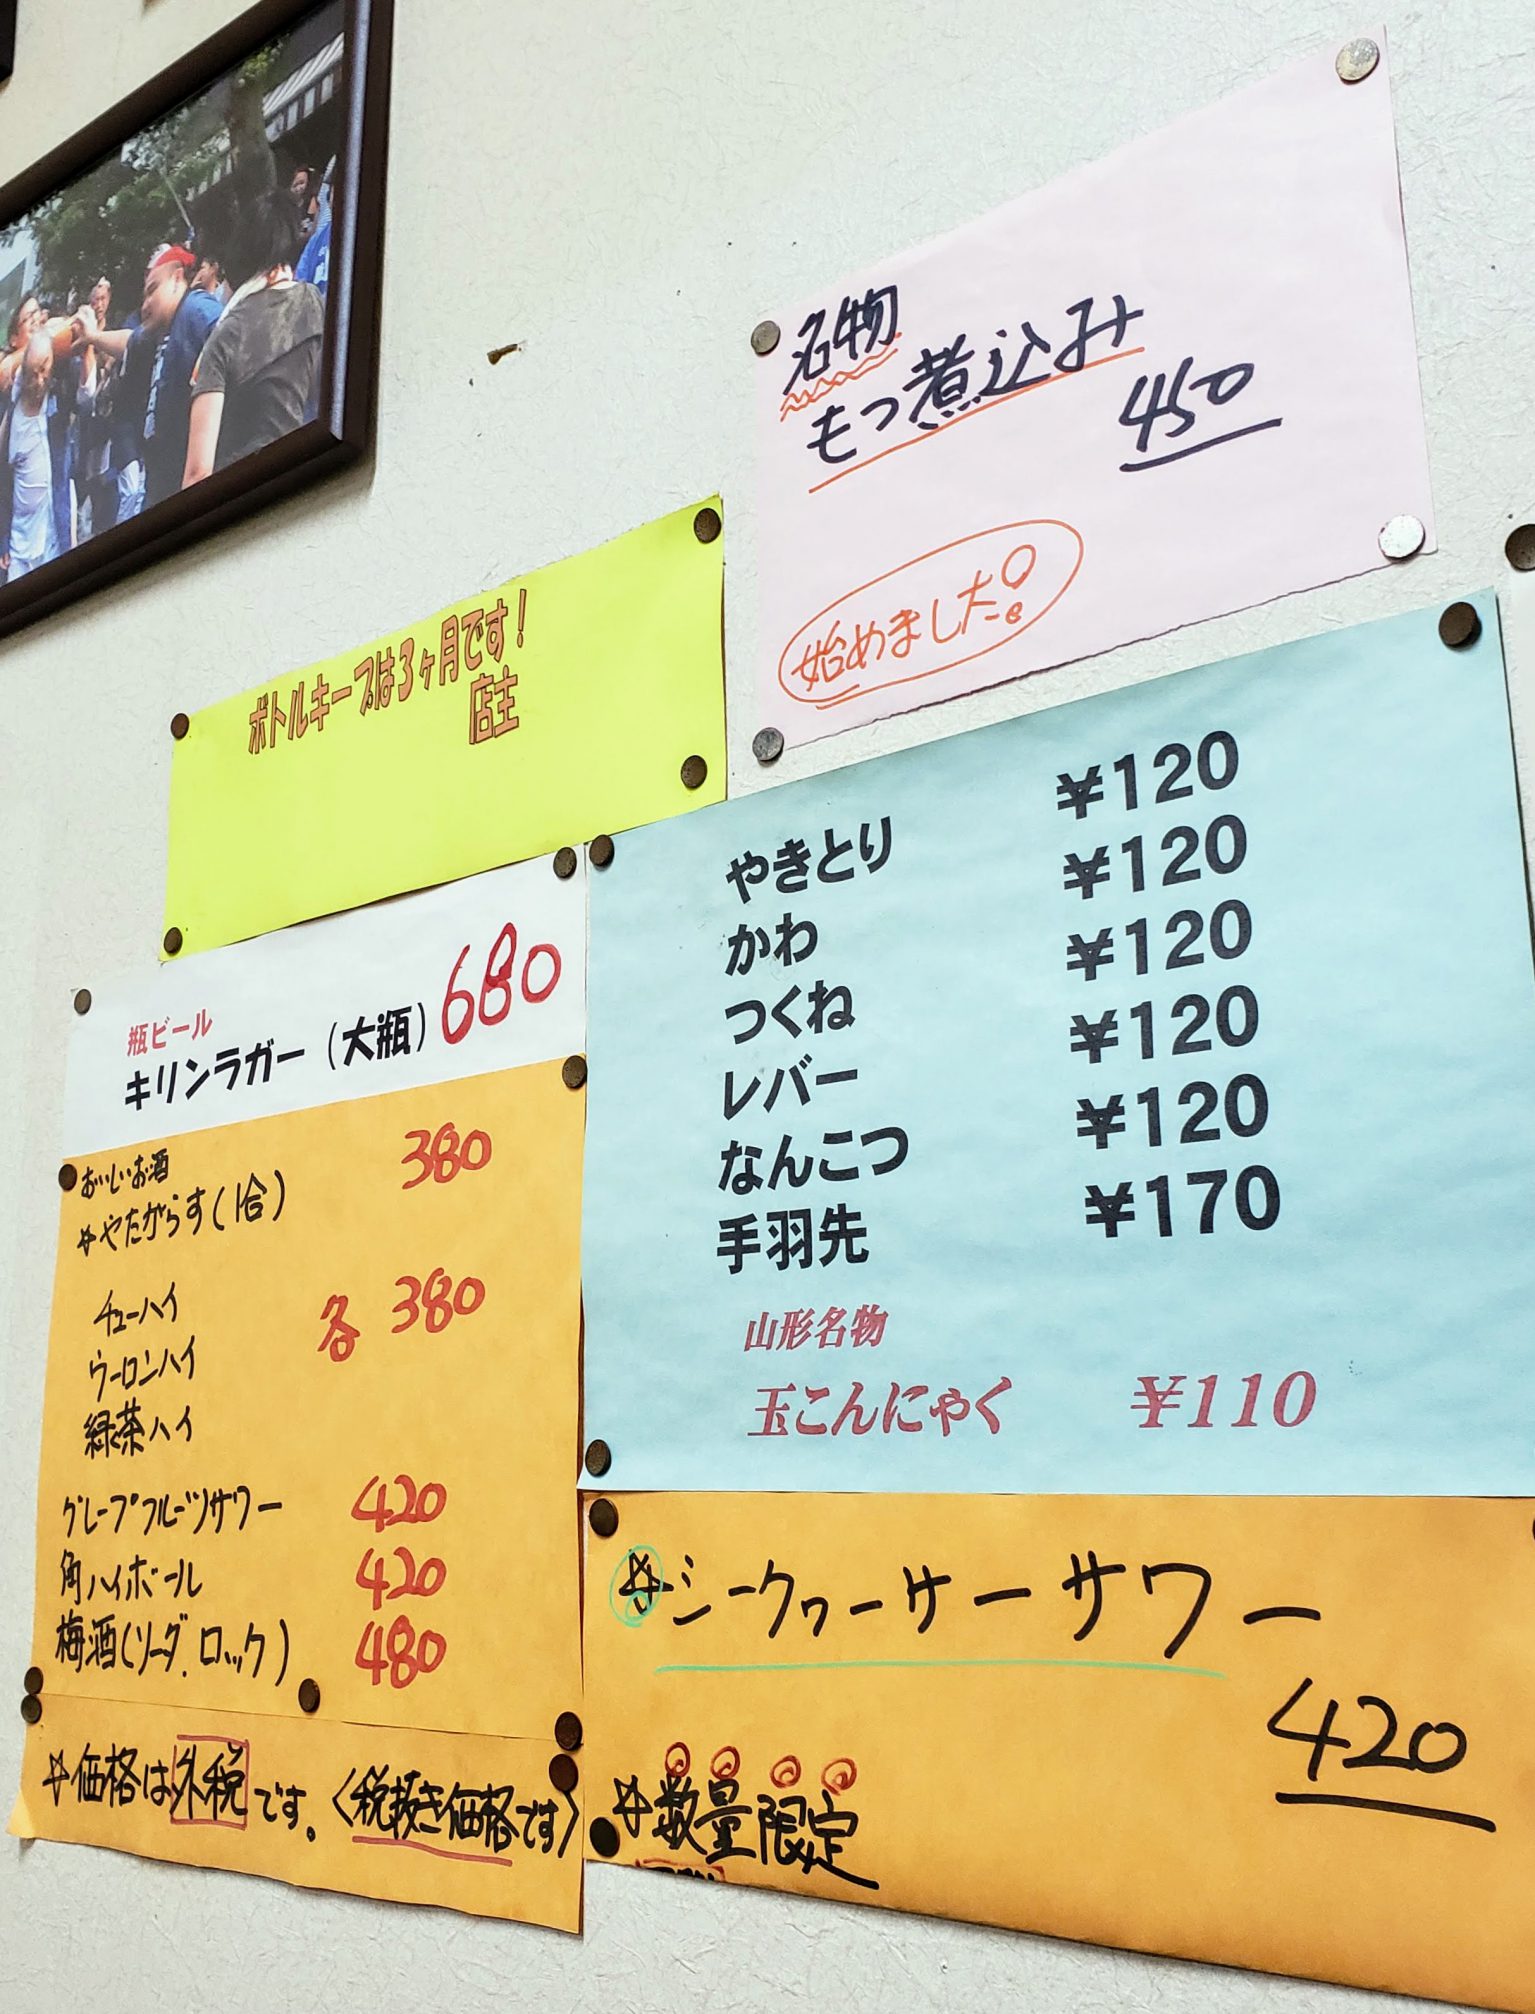 名物
もつ煮込み
450
始めました!。
ボトルキープは3ヶ月です!
店主
瓶ビール
キリンラガー (大瓶) 680
おいしいお酒
☆やたがらす(1合) 380
チューハイ 各 380
ウーロンハイ
緑茶ハイ
グレープフルーツサワー 420
角ハイボール 420
梅酒(ソーダ.ロック) 480
☆価格は外税です。〈税抜き価格です〉
やきとり ¥120
かわ ¥120
つくね ¥120
レバー ¥120
なんこつ ¥120
手羽先 ¥170
山形名物
玉こんにゃく ¥110
☆シークヮーサーサワー
420
☆数量限定